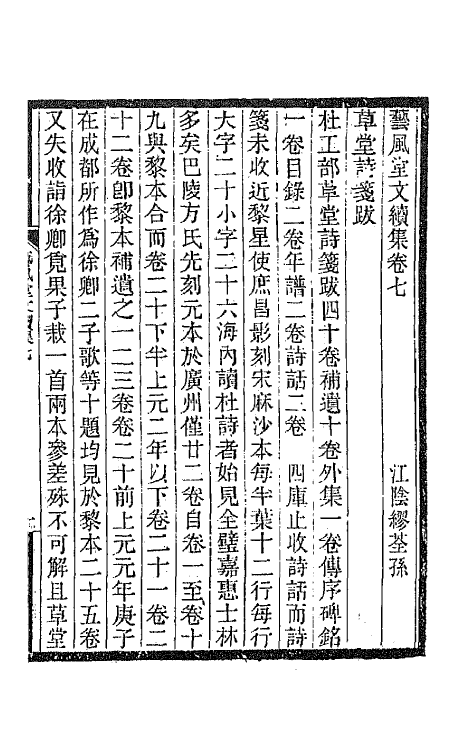 藝風堂文續集卷七　江陰繆荃孫
草堂詩箋跋
杜工部草堂詩箋跋四十卷補遺十卷外集一卷傳序碑銘
一卷目錄二卷年譜二卷詩話二卷　四庫止收詩話而詩
箋未收近黎星使庶昌影刻宋麻沙本每半葉十二行每行
大字二十小字二十六海內讀杜詩者始見全璧嘉惠士林
多矣巴陵方氏先刻元本於廣州僅廿二卷自卷一至卷十
九與黎本合而卷二十下半上元二年以下卷二十一卷二
十二卷卽黎本補遺之一二三卷卷二十前上元元年庚子
在成都所作爲徐卿二子歌等十題均見於黎本二十五卷
又失收詣徐卿覓果子栽一首兩本參差殊不可解且草堂